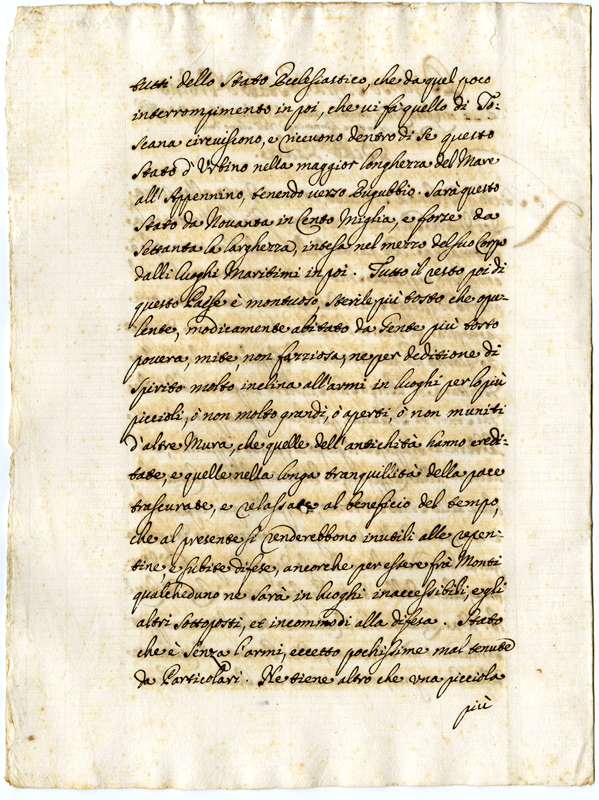 tutti dello Stato Ecclesiastico, che da quel poco
interrompimento in poi, che vi fà quello di To-
scana circuiscono, e ricevono dentro di se questo
Stato d'Urbino nella maggior longhezza del Mare
all'Appennino, tenendo verso Eugubbio. Sarà questo
Stato da Novanta in Cento Miglia, e forze da
Settanta la larghezza, intesa nel mezzo del suo Corpo
dalli luoghi Maritimi in poi. Tutto il resto poi di
questo Paese è montuoso, sterile più tosto che opu-
lente, modicamente abitato da Gente più tosto
povera, mite, non fazziosa, ne per deditione di
spirito molto inclina all'armi in luoghi per lo più
piccioli, ò non molto grandi, ò aperti, ò non muniti
d'altre Mura, che quelle dell'antichità hanno eredi-
tate, e quelle nella longa tranquillità della pace
trascurate, e relassate al beneficio del tempo,
che al presente si renderebbono inutili alle repen-
tine, e subite difese, ancorche per essere frà Monti
qualcheduno ne sarà in luoghi inaccessibili, e gli
altri sottoposti, et incommodi alla difesa. Stato
che è senza l'armi, eccetto pochissime mal tenute
da Particolari. Ne tiene altro che vna picciola
più